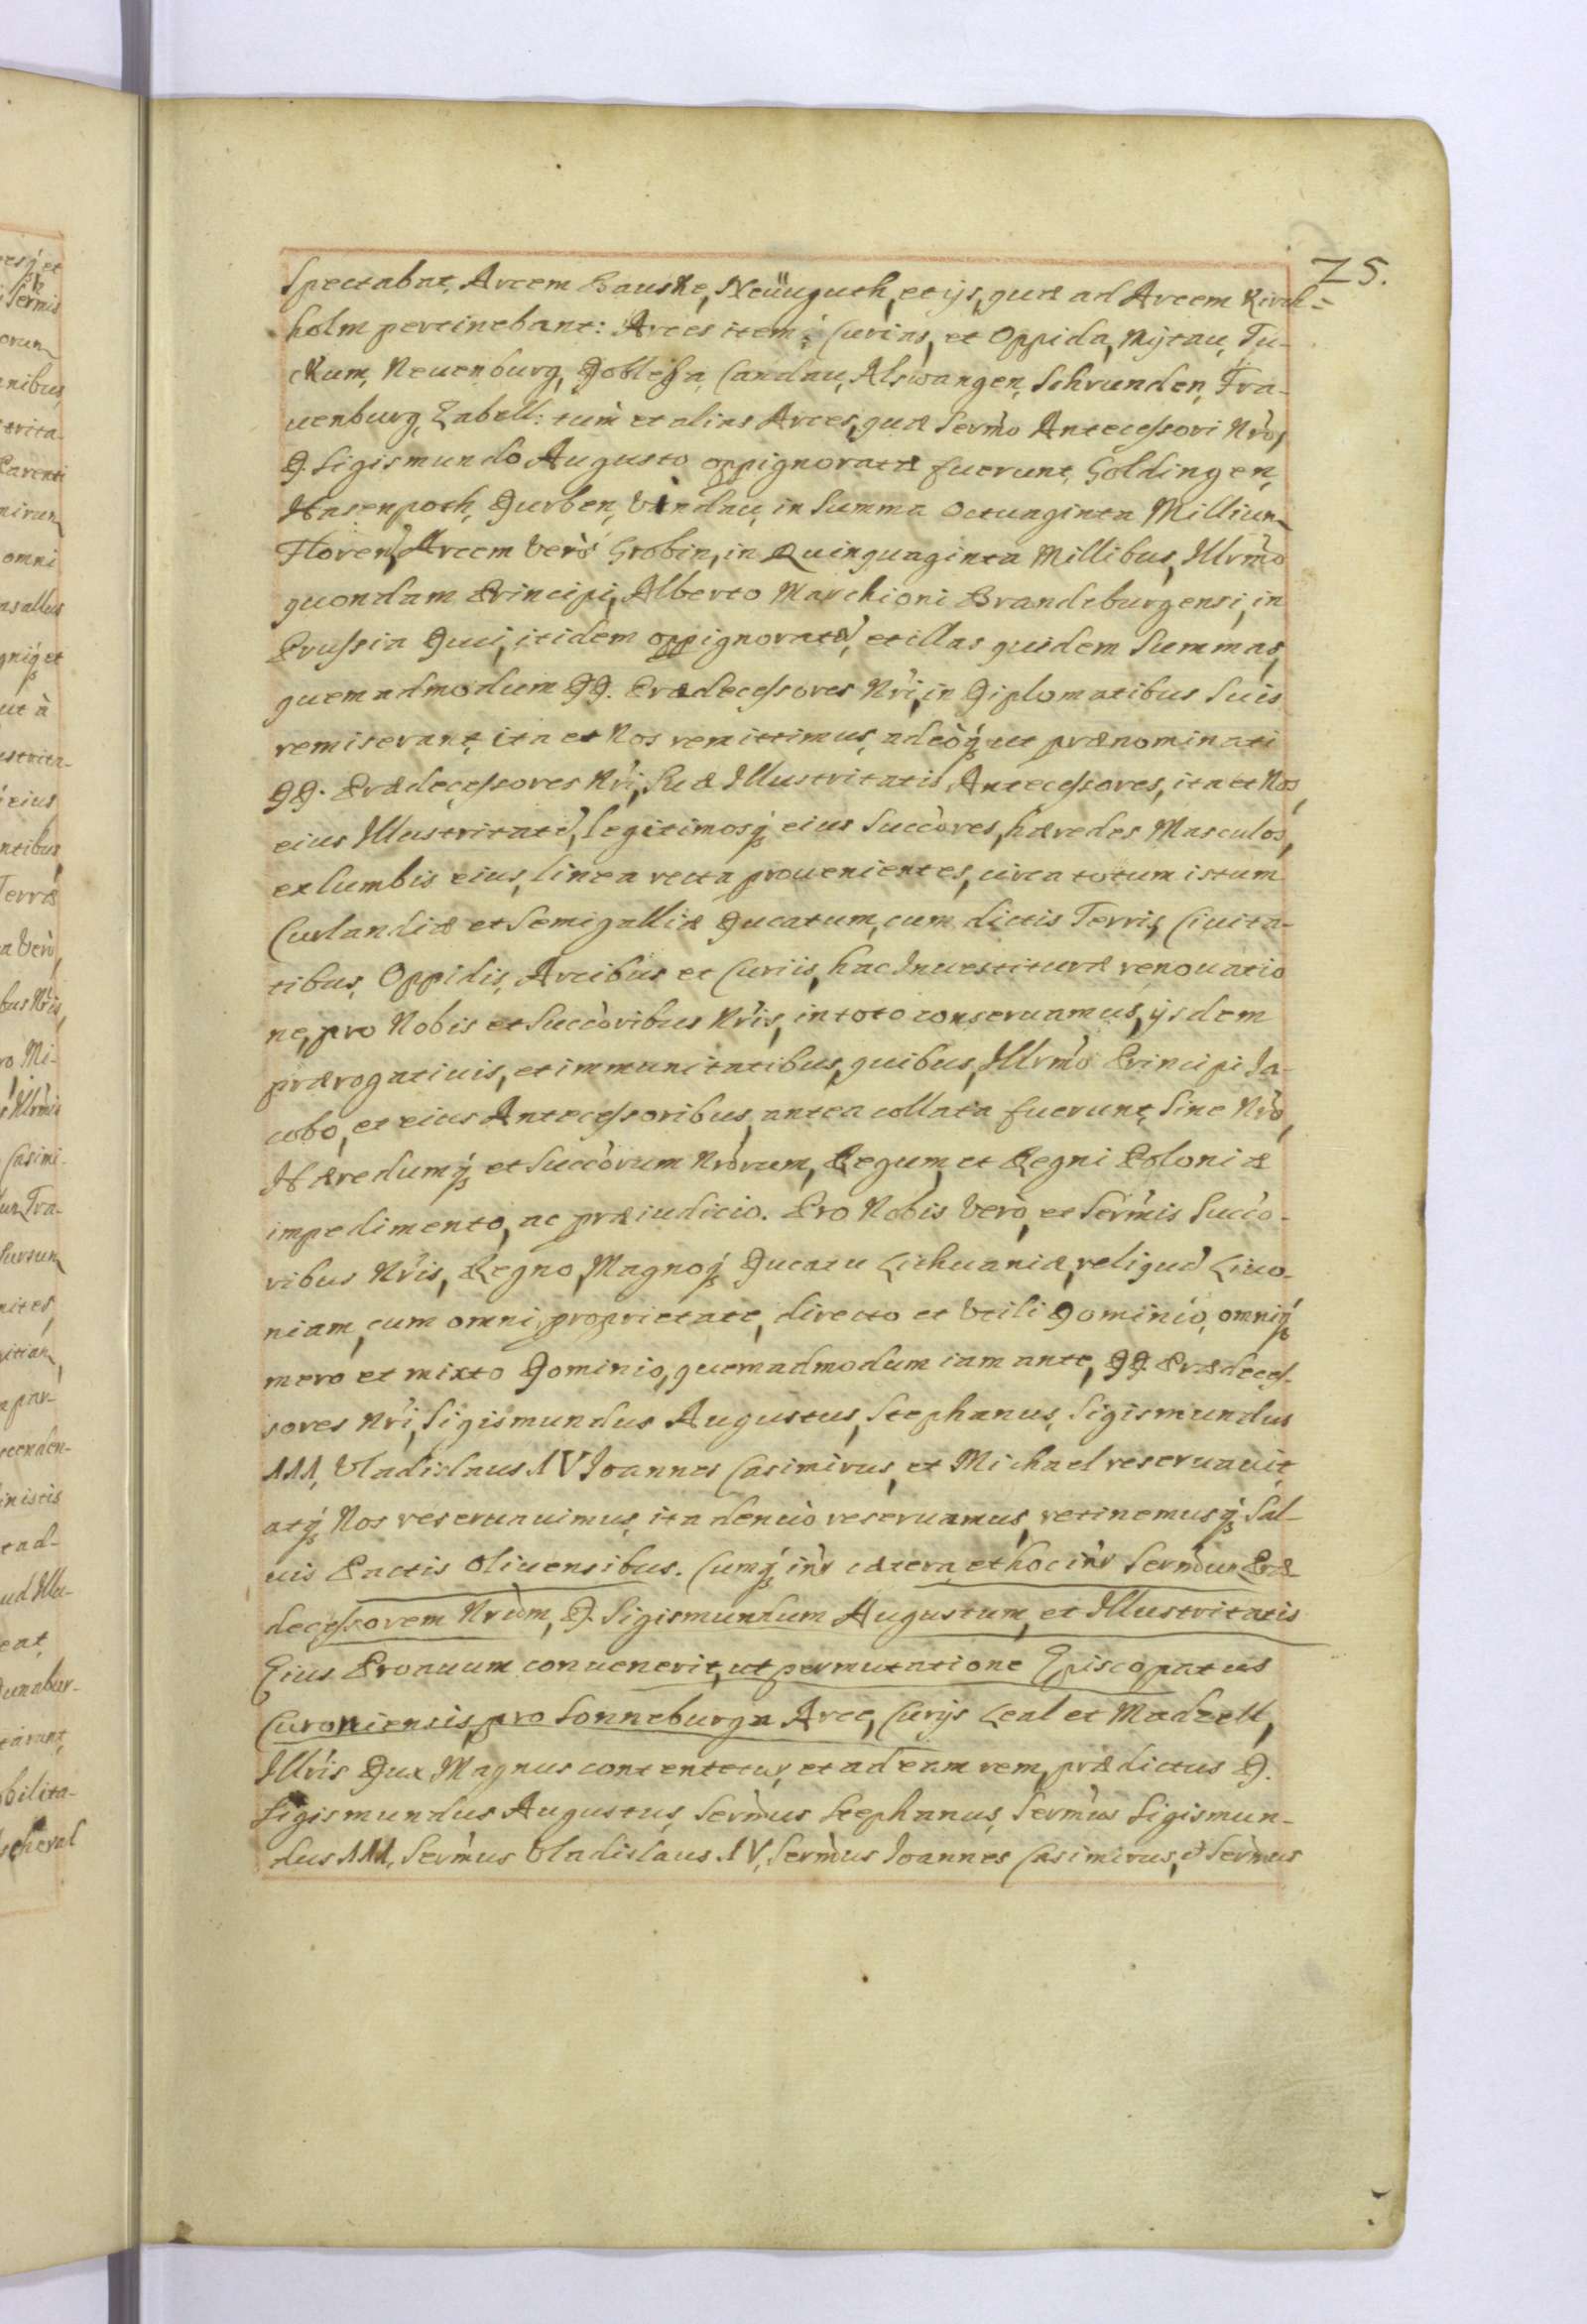 25.
Spectabat, Arcem Bauske, Neüuguth, et ijs, quæ ad Arcem Kirck=
holm pertinebant: Arces item, Curias, et Oppida, Mÿtau, Tu-
ckum, Neuenburg, Doblehn, Candau, Alswangen, Schrunden, Fra-
uenburg, Zabell: tum et alias Arces, quæ Sermo Antecessori Nro,
D. Sigismundo Augusto oppignoratæ fuerunt, Goldingen,
Hasenpoth, Durben, Vindau, in Summa Octuaginta Millium
Floren, Arcem Verò Grobin, in Quinquaginta Millibus, Illrmo
quondam Principi, Alberto Marchioni Brandeburgensi, in
Prussia Duci, itidem oppignoratã, et illas quidem Summas,
quemadmodum DD. Prædecessores Nri, in Diplomatibus Suis
remiserant, ita et Nos remittimus, adeòq́ ut prænominati
DD. Prædecessores Nri, Suæ Illustritatis Antecessores, ita et Nos,
eius Illustritatẽ, legitimosq́ eius Succòres, hæredes Masculos,
ex lumbis eius, linea recta prouenientes, circa totum istum
Curlandiæ et Semigalliæ Ducatum, cum dictis Terris, Ciuita-
tibus, Oppidis, Arcibus et Curiis, hac Inuestituræ renouatio
ne, pro Nobis et Succòribus Nris, in toto conseruamus, ijsdem
prærogatiuis, et immunitatibus, quibus, Illrmo Principi Ja-
cobo, et eius Antecessoribus, antea collata fuerunt, Sine Nrò,
Hæredumq́ et Succòrum Nrorum, Regum, et Regni Poloniæ
impedimento, ac præiudicio. Pro Nobis Verò, et Sermis Succo-
ribus Nris, Regno, Magnoq́ Ducatu Lithuaniæ, reliquã Liuo-
niam, cum omni, proprietate, directo et Vtili Dominio, omniq́
mero et mixto Dominio, quemadmodum iam ante, DD. Prædeces-
sores Nri, Sigismundus Augustus, Stephanus, Sigismundus
III, Vladislaus IV Joannes Casimirus, et Michael reseruauit,
atq́ Nos reseruauimus, ita denuò reseruamus, retinemusq́ Sal-
uis Pactis Oliuensibus. Cumq́ intr cætera, et hoc intr Sermum Præ-
decessorem Nrum, D. Sigismundum Augustum, et Illustritatis
Eius Proauum conuenerit, ut permutatione Episcopatus
Curoniensis, pro Sonneburgn Arce, Curijs Leal et Madzell,
Illris Dux Magnus contentetur, et ad eam rem, prædictus D.
Sigismundus Augustus, Sermus Stephanus, Sermus Sigismun-
dus III, Sermus Vladislaus IV, Sermus Joannes Casimirus, & Sermus